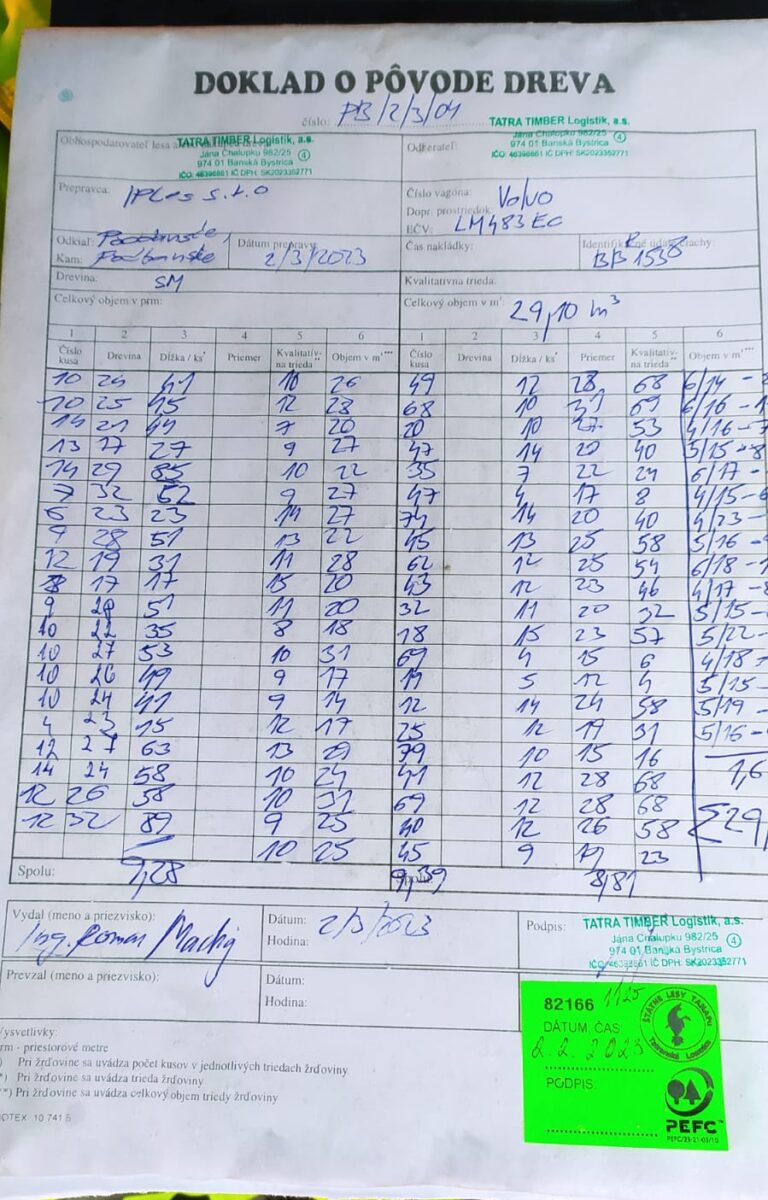 DOKLAD O PÔVODE DREVA
číslo: PB/2/3/01
TATRA TIMBER Logistik, a.s.
Jána Chalupku 982/25
974 01 Banská Bystrica
IČO: 46396861 IČ DPH: SK2023352771
4
Odberateľ:
TATRA TIMBER Logistik, a.s.
Jána Chalupku 982/25
974 01 Banská Bystrica
IČO: 46396861 IČ DPH: SK2023352771
4
Prepravca: s.r.o
Číslo vagóna:
Dopr. prostriedok: Volvo
EČV: LM483EC
Odkiaľ:
Kam: Podbanské
Dátum prepravy: 2/3/2023
Čas nakládky:
BB 1538
Drevina: SM
Kvalitatívna trieda:
Celkový objem v prm:
Celkový objem v m³: 29,10 m³
1 2 3 4 5 6 1 2 3 4 5 6
Číslo kusa Drevina Dĺžka / ks* Priemer Kvalitatív- na trieda Objem v m³*** Číslo kusa Drevina Dĺžka / ks* Priemer Kvalitatív- na trieda Objem v m³***
10 24 41 10 26 49 12 28 68 6/14
10 25 45 12 28 68 10 31 69 6/16
14 21 44 7 20 20 10 27 53 4/16
13 17 27 9 27 47 14 20 40 5/15
14 29 85 10 22 35 7 22 24 6/17
7 32 52 9 27 47 4 17 8 4/15
6 23 23 14 27 74 14 20 40 4/23
9 28 51 13 22 45 13 25 58 5/16
12 19 31 11 28 62 12 25 54 6/18
17 17 15 20 43 12 23 46 4/17
9 28 51 11 20 32 11 20 32 5/15
10 22 35 8 18 18 15 23 57 5/22
10 27 53 10 31 69 4 15 6 4/18
10 26 49 9 17 5 12 4 5/15
10 24 41 9 14 12 14 24 58 5/19
4 23 15 12 17 25 12 19 31 5/16
12 27 63 13 29 79 10 15 16
14 24 58 10 24 41 12 28 68 1,6
12 26 58 10 31 69 12 28 68
12 32 89 9 25 40 12 26 58 Σ29
10 25 45 9 19 23
Spolu: 9,28 9,39 8,81
Vydal (meno a priezvisko):
Ing. Roman
Dátum: 2/3/2023
Hodina:
Podpis:
TATRA TIMBER Logistik, a.s.
Jána Chalupku 982/25
974 01 Banská Bystrica
IČ DPH: SK2023352771
4
Prevzal (meno a priezvisko):
Dátum:
Hodina:
82166 1125
DÁTUM, ČAS:
2.2.2023
PODPIS:
ŠTÁTNE LESY TANAPU
Tatranská Lomnica
PEFC™
PEFC/23-21-03/10
ysvetlivky:
rm - priestorové metre
) Pri žrďovine sa uvádza počet kusov v jednotlivých triedach žrďoviny
*) Pri žrďovine sa uvádza trieda žrďoviny
**) Pri žrďovine sa uvádza celkový objem triedy žrďoviny
OTEX 10 741 5